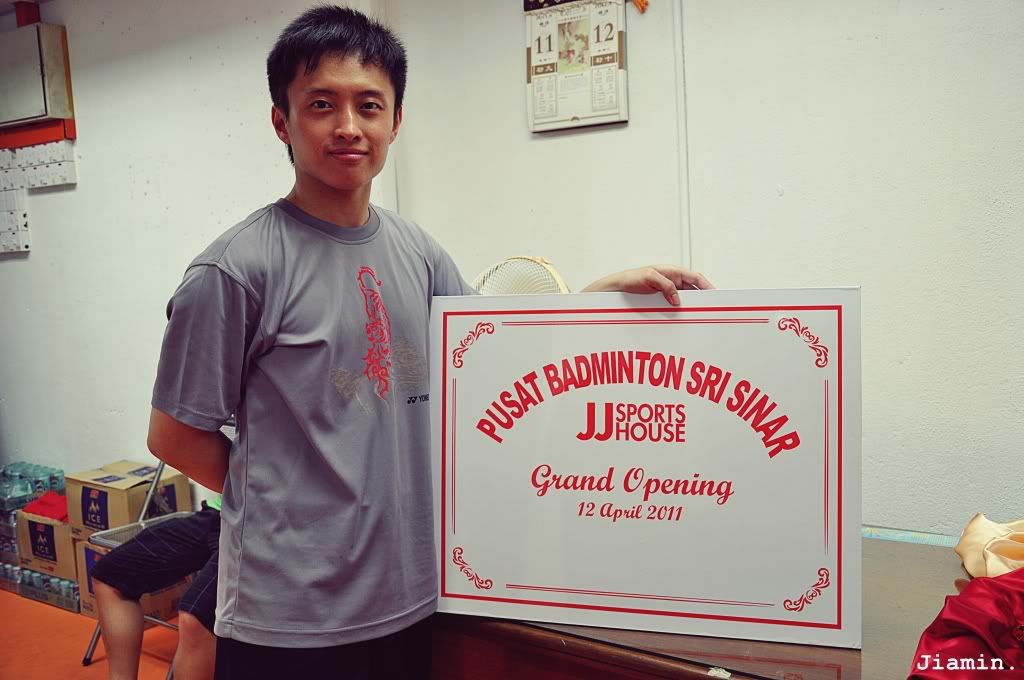 11
12
初九
初十
YONEX
PUSAT BADMINTON SRI SINAR
JJ SPORTS
HOUSE
Grand Opening
12 April 2011
ICE
ICE
Jiamin.